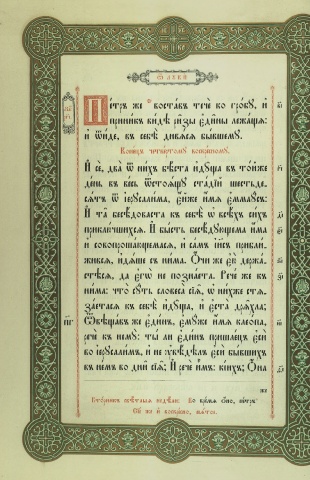 Ѿ лꙋки
Пе́тръ же воста́въ течѐ ко гро́бꙋ, и҆
прини́къ ви́дѣ ри̑зы є҆ди̑ны лежа́щꙋ:
и҆ ѿи́де, въ себѣ̀ дивѧ́сѧ бы́вшемꙋ.
Коне́цъ четве́ртомꙋ воскре́сномꙋ.
И҆ сѐ, два̀ ѿ ни́хъ бѣ́ста и҆дꙋ̑ща въ то́йже
де́нь въ ве́сь ѿстоѧ́щꙋ ста́дїй шестьде-
сѧ́тъ ѿ і҆ерⷭ҇али́ма, є҆́йже и҆́мѧ є҆ммаꙋ́съ:
И҆ та̑ бесѣ́доваста къ себѣ̀ ѡ҆ всѣ́хъ си́хъ
приклю́чшихсѧ. И҆ бы́сть бесѣ́дꙋющема и҆́ма
и҆ совопроша́ющемасѧ, и҆ са́мъ і҆и҃съ прибли́-
жи́всѧ, и҆дѧ́ше съ ни́ма. Ѻ҆́чи же є҆ю̀ держа́-
стѣсѧ, да є҆гѡ̀ не позна́ета. Рече́ же къ
ни́ма: что̀ сꙋ́ть словеса̀ сїѧ̑, ѡ҆ ни́хже стѧ-
за́етасѧ къ себѣ̀ и҆дꙋ̑ща, и҆ є҆ста̀ дрѧ̑хла;
Ѿвѣща́въ же є҆ди́нъ, є҆мꙋ́же и҆́мѧ клео́па,
речѐ къ немꙋ̀: ты́ ли є҆ди́нъ прише́лецъ є҆сѝ
во і҆ерⷭ҇али́мъ, и҆ не ᲂу҆вѣ́дѣлъ є҆сѝ бы́вшихъ
въ не́мъ во дни̑ сїѧ̑; И҆ речѐ и҆́ма: кі́ихъ; Ѻ҆́на
же
Вто́рникъ свѣ́тлыѧ недѣ́ли: Во вре́мѧ